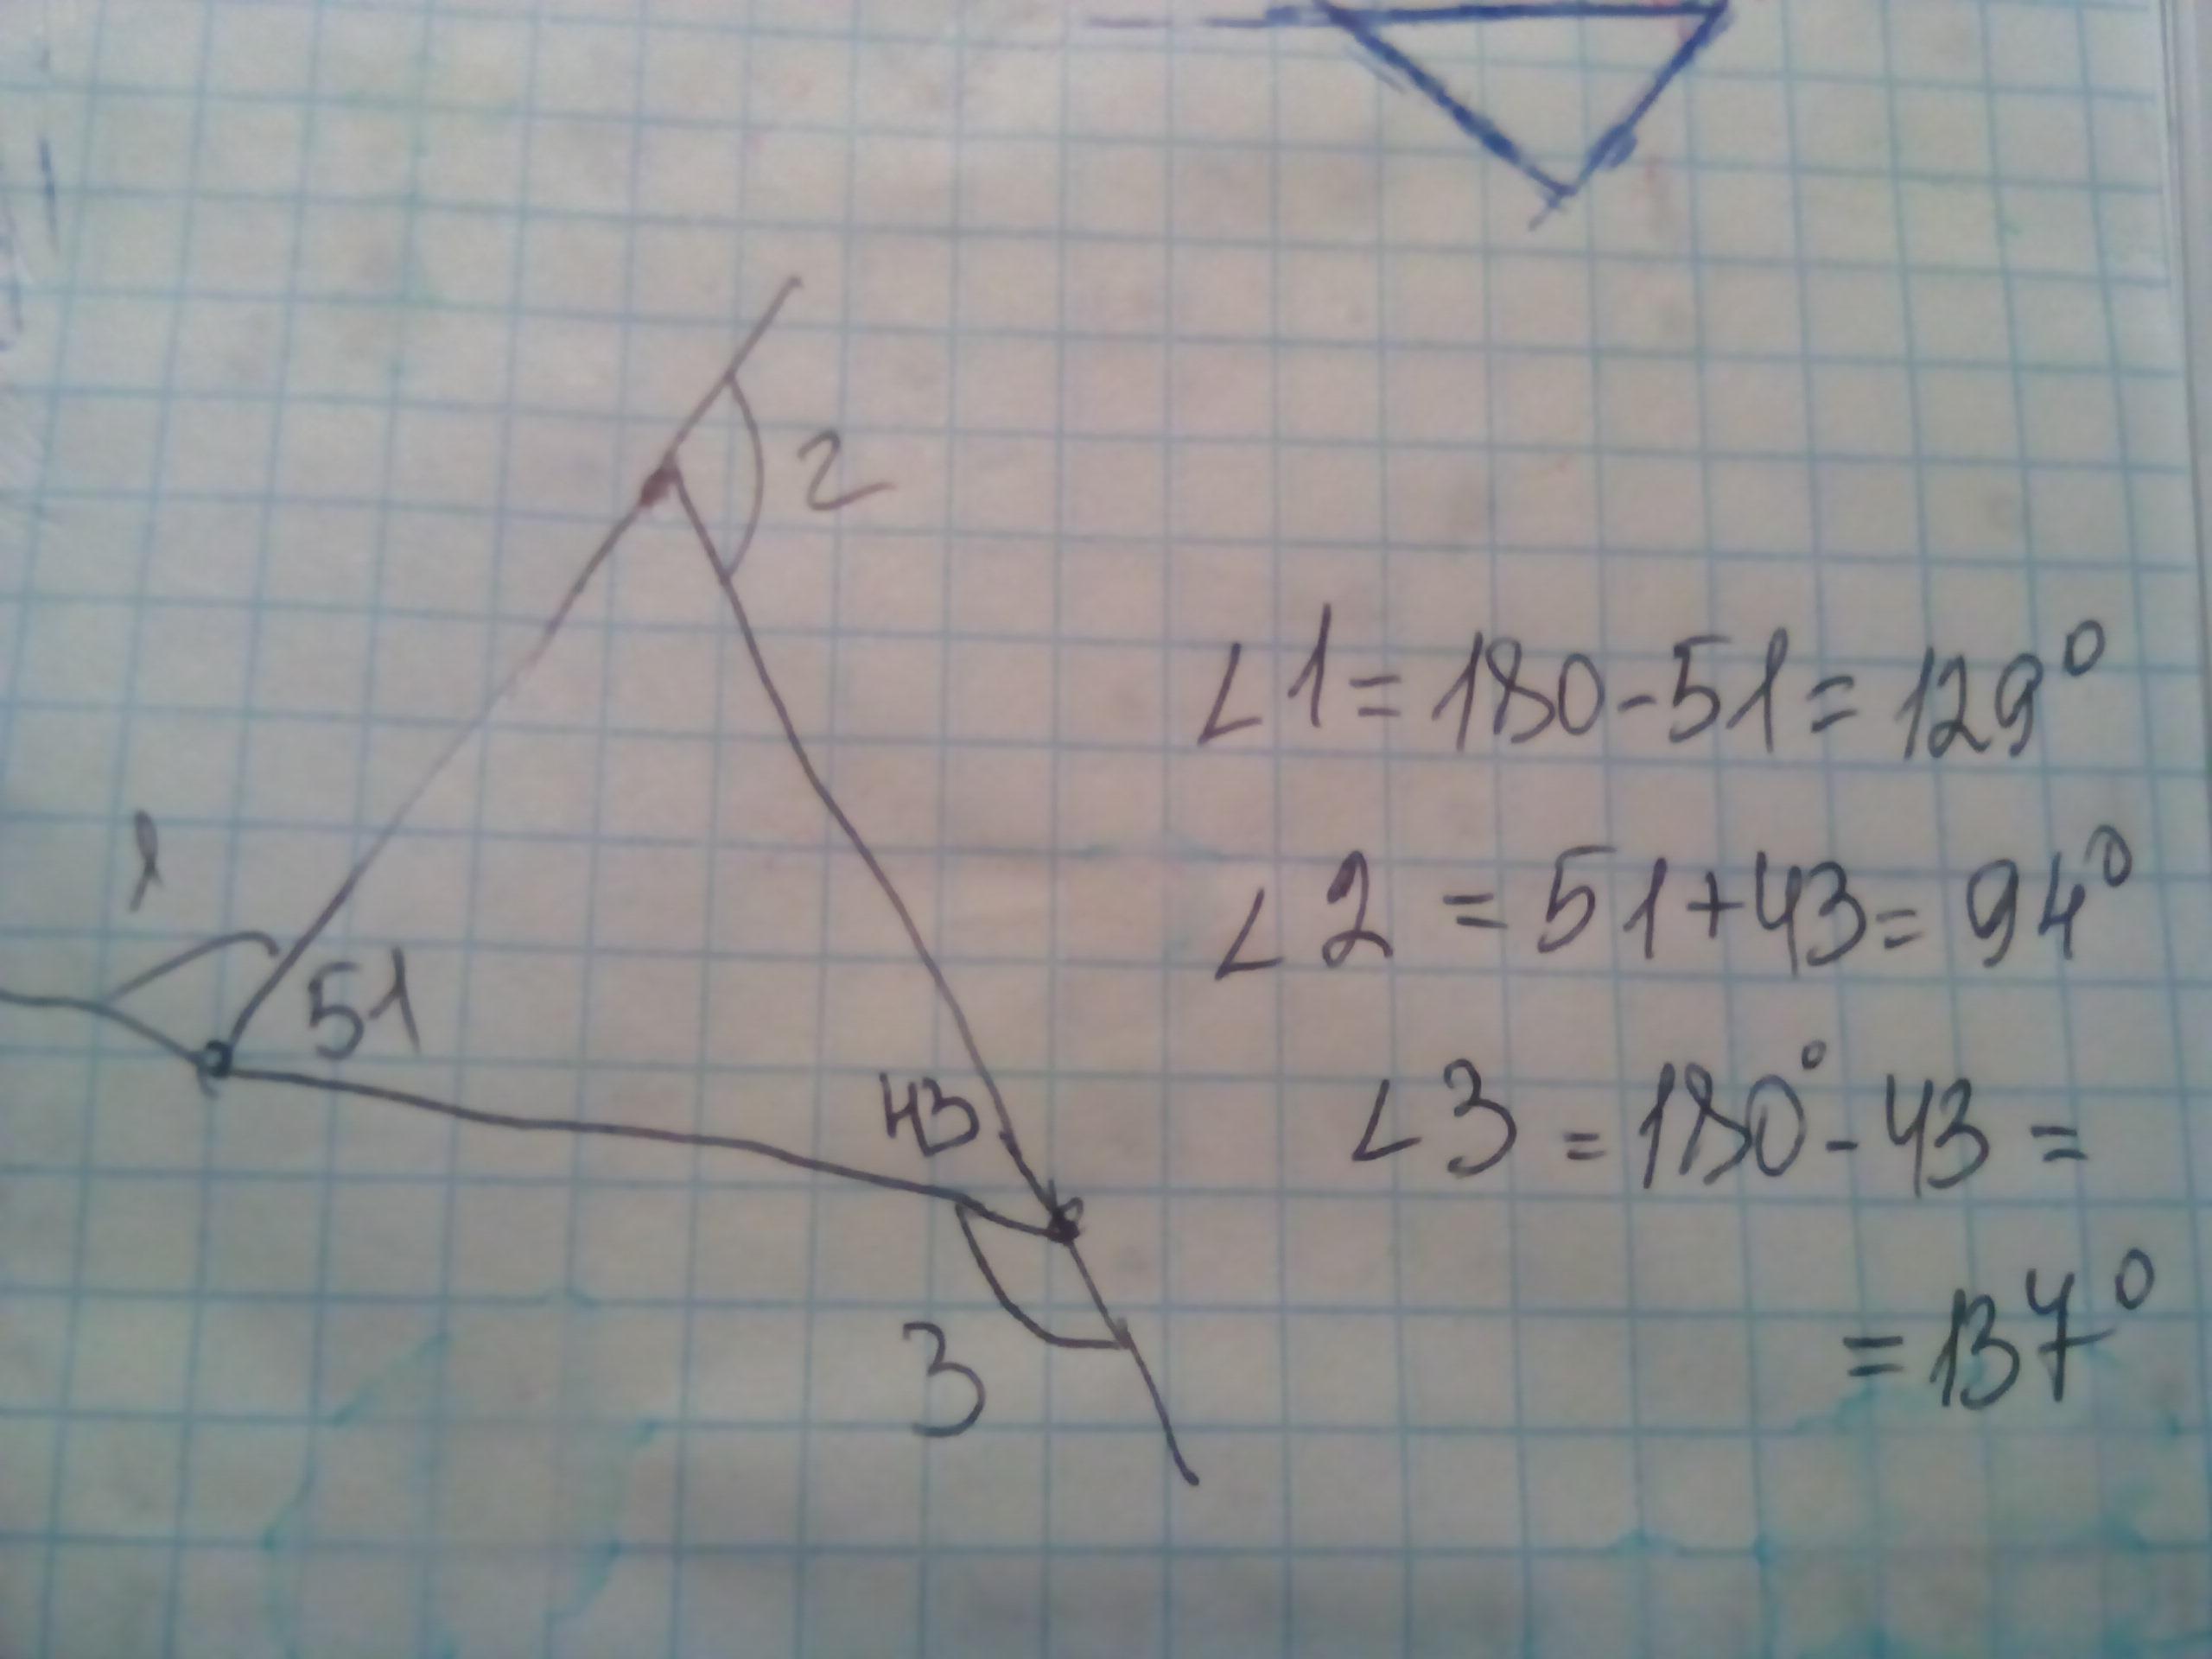 2
1
51
43
3
∠1 = 180 - 51 = 129°
∠2 = 51 + 43 = 94°
∠3 = 180° - 43 =
= 137°